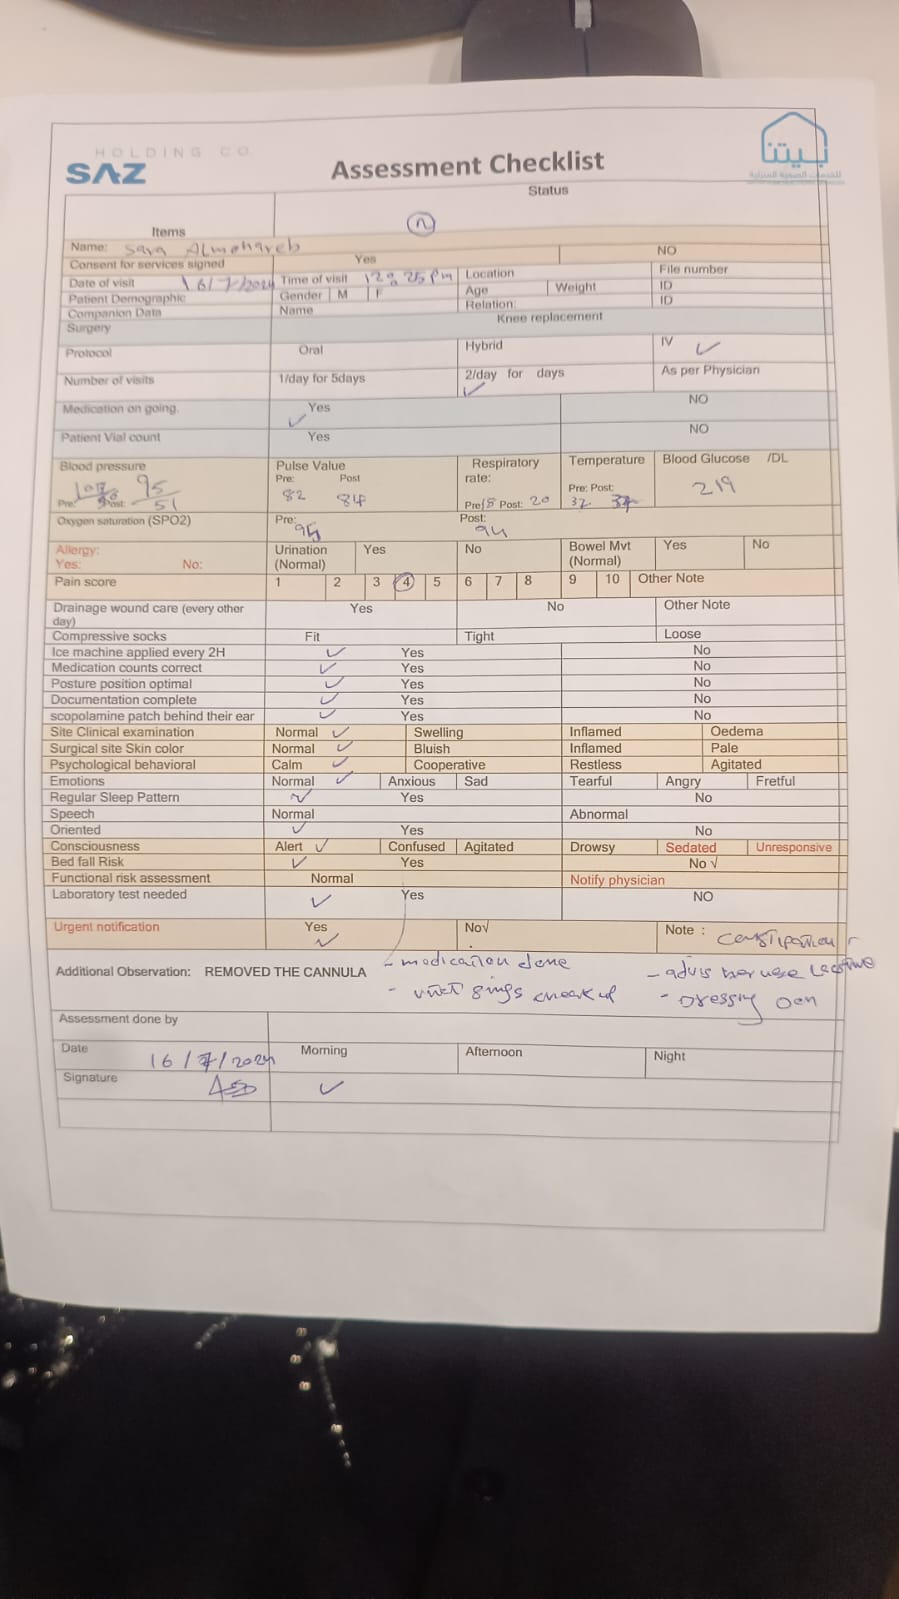 HOLDING CO.
SAZ
Assessment Checklist
بيتنا
للخدمات الصحية المنزلية
Items Status
Name: Sara Almohareb
Consent for services signed Yes NO
Date of visit 16/7/2024 Time of visit Location File number
Patient Demographic Gender M F Age Weight ID
Companion Data Name Relation: ID
Surgery Knee replacement
Protocol Oral Hybrid IV ✓
Number of visits 1/day for 5days 2/day for days ✓ As per Physician
Medication on going. Yes ✓ NO
Patient Vial count Yes NO
Blood pressure Pulse Value Respiratory rate: Temperature Blood Glucose /DL
Pre: Post: 95/51 Pre: 82 Post 84 Pre 18 Post: 20 Pre: Post: 37 219
Oxygen saturation (SPO2) Pre: 95 Post: 94
Allergy: Urination Yes No Bowel Mvt Yes No
Yes: No: (Normal) (Normal)
Pain score 1 2 3 4 5 6 7 8 9 10 Other Note
Drainage wound care (every other day) Yes No Other Note
Compressive socks Fit Tight Loose
Ice machine applied every 2H ✓ Yes No
Medication counts correct ✓ Yes No
Posture position optimal ✓ Yes No
Documentation complete ✓ Yes No
scopolamine patch behind their ear ✓ Yes No
Site Clinical examination Normal ✓ Swelling Inflamed Oedema
Surgical site Skin color Normal ✓ Bluish Inflamed Pale
Psychological behavioral Calm ✓ Cooperative Restless Agitated
Emotions Normal ✓ Anxious Sad Tearful Angry Fretful
Regular Sleep Pattern ✓ Yes No
Speech Normal Abnormal
Oriented ✓ Yes No
Consciousness Alert ✓ Confused Agitated Drowsy Sedated Unresponsive
Bed fall Risk ✓ Yes No √
Functional risk assessment Normal Notify physician
Laboratory test needed ✓ Yes NO
Urgent notification Yes ✓ No√ Note : constipation
Additional Observation: REMOVED THE CANNULA
- medication done
- vital sings
- advis her use
- Dressing
Assessment done by
Date 16/7/2024 Morning Afternoon Night
Signature ✓